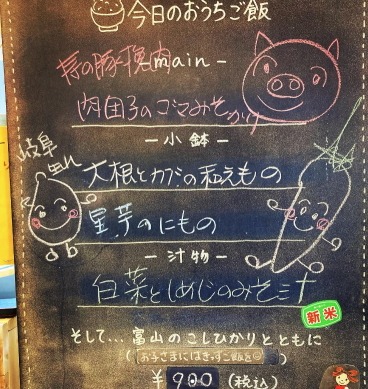 今日のおうちご飯
豚挽肉
- main -
肉団子のゴマみそかけ
- 小鉢 -
岐阜
大根とカブの和えもの
里芋のにもの
- 汁物 -
白菜としめじのみそ汁
新米
そして... 富山のこしひかりとともに
(お子さまにはきっずご飯を)
¥900(税込)